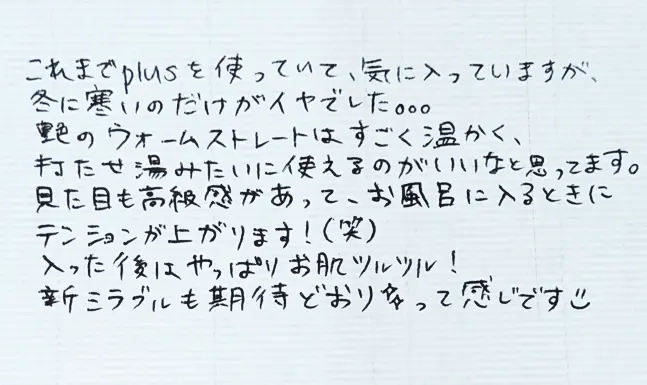 これまでplusを使っていて、気に入っていますが、
冬に寒いのだけがイヤでした。。。
艶のウォームストレートはすごく温かく、
打たせ湯みたいに使えるのがいいなと思ってます。
見た目も高級感があって、お風呂に入るときに
テンションが上がります!(笑)
入った後はやっぱりお肌ツルツル!
新ミラブルも期待どおりって感じです